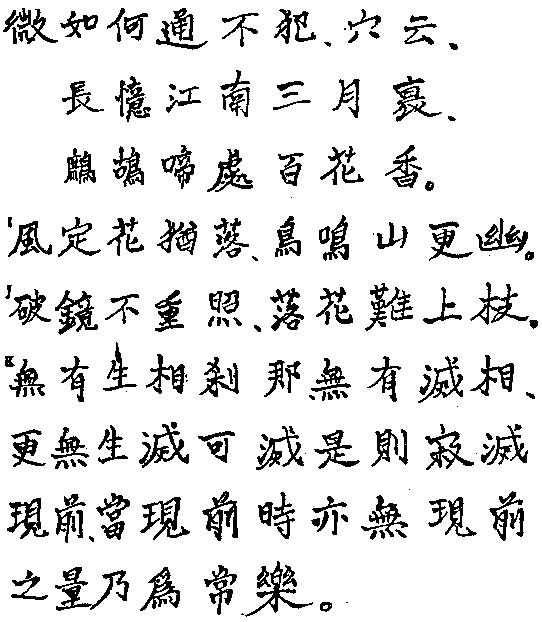 微如何通不犯、穴云、
長憶江南三月裏、
鷓鴣啼處百花香。
風定花猶落、鳥鳴山更幽。
破鏡不重照、落花難上枝。
無有生相刹那無有滅相、
更無生滅可滅是則寂滅
現前、當現前時亦無現前
之量乃爲常樂。